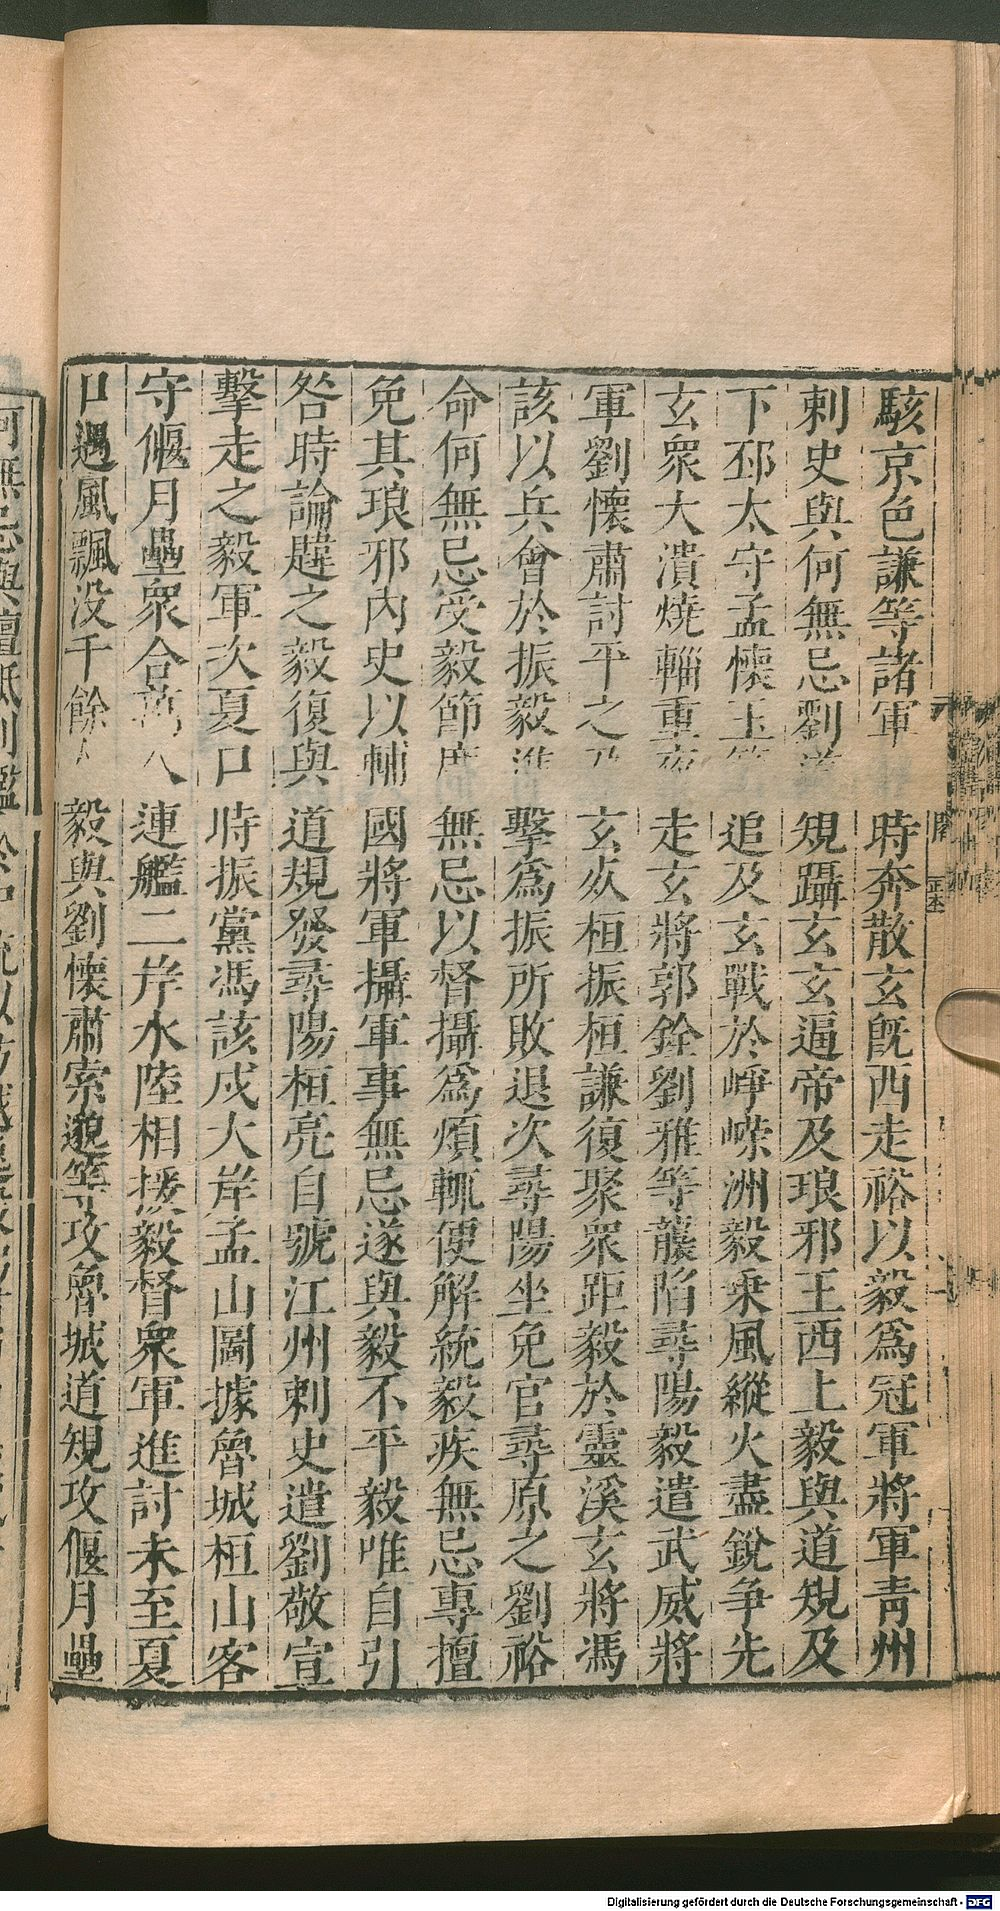 駭京色謙等諸軍時奔散玄旣西走裕以毅爲冠軍將軍靑州
刺史與何無忌劉道規躡玄玄逼帝及琅邪王西上毅與道規及
下邳太守孟懷玉等追及玄戰於崢嶸洲毅乗風縱火盡銳争先
玄衆大潰燒輜重夜走玄將郭銓劉雅等襲陷尋陽毅遣武威將
軍劉懷肅討平之及玄死桓振桓謙復聚衆距毅於靈溪玄將馮
該以兵會於振毅進擊爲振所敗退次尋陽坐免官尋原之劉裕
命何無忌受毅節度無忌以督攝爲煩輒便解統毅疾無忌專擅
免其琅邪内史以輔國將軍攝軍事無忌遂與毅不平毅唯自引
咎時論韙之毅復與道規發尋陽桓亮自號江州刺史遣劉敬宣
擊走之毅軍次夏口時振黨馮該戍大岸孟山圖據魯城桓山客
守偃月壘衆合萬人連艦二岸水陸相援毅督衆軍進討未至夏
口遇風飄没千餘人毅與劉懷肅索邈等攻魯城道規攻偃月壘
Digitalisierung gefördert durch die Deutsche Forschungsgemeinschaft - DFG